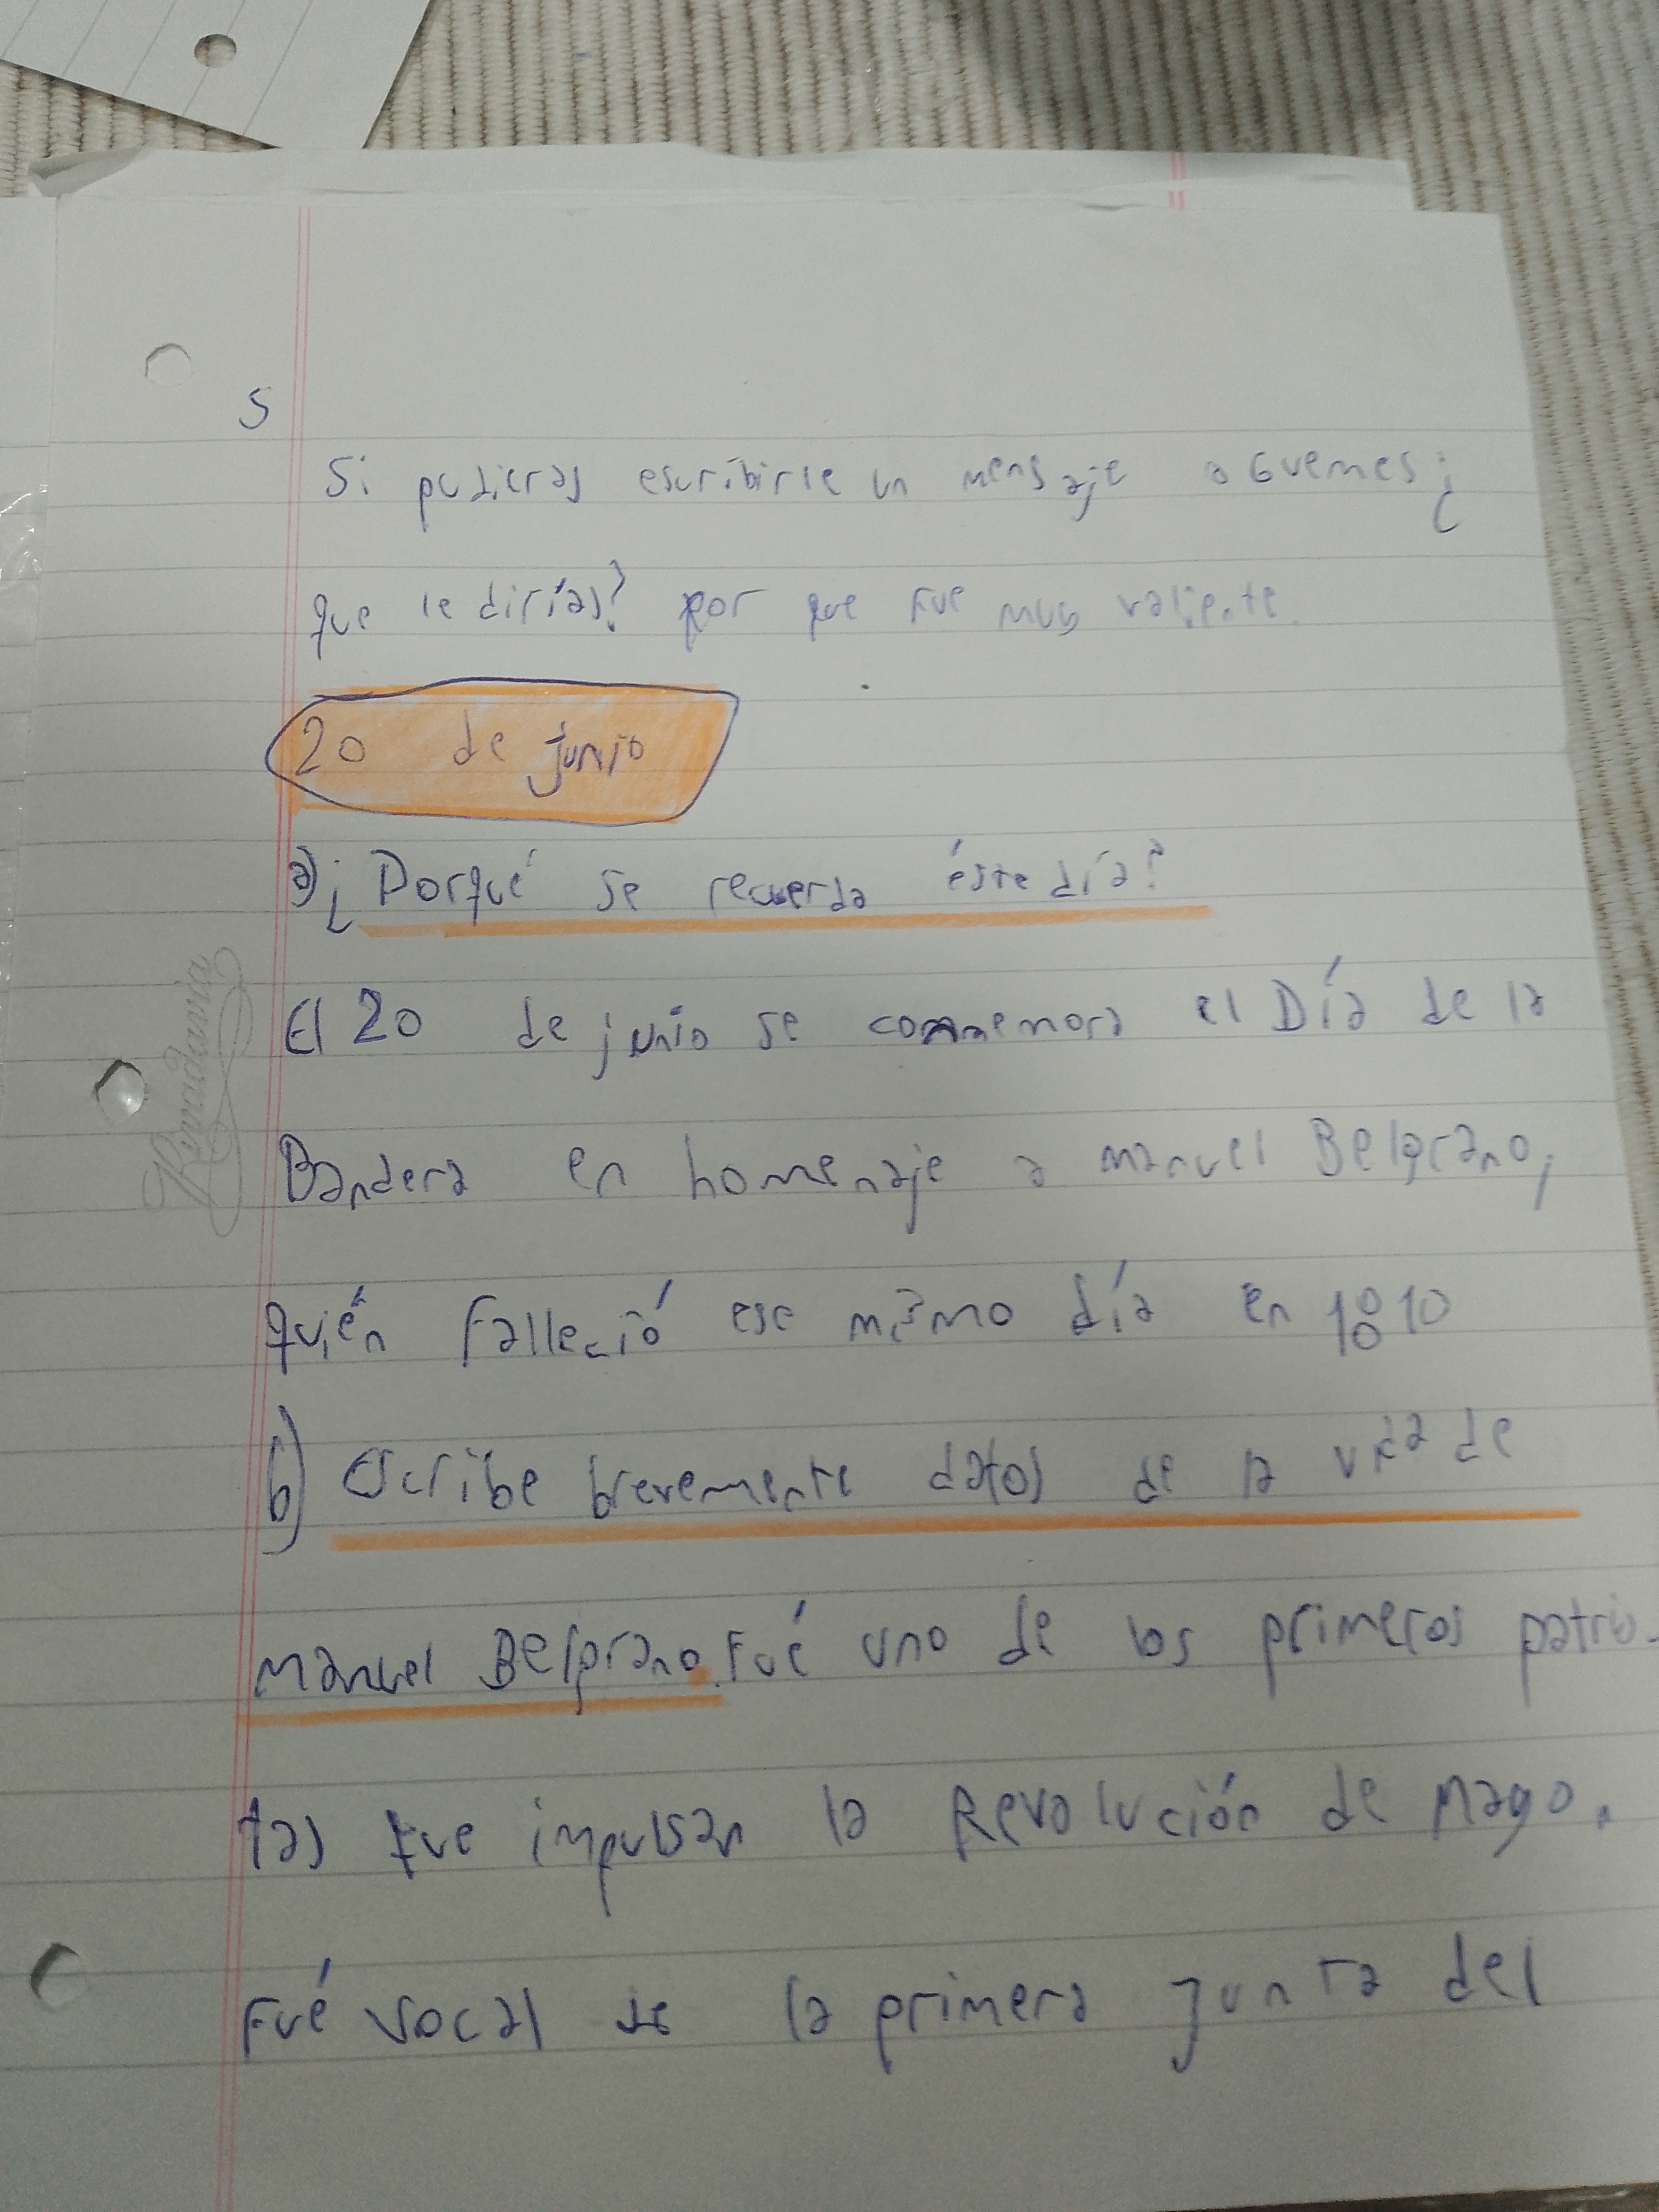 5
Si pudieras escribirle un mensaje a Guemes ¿
que le dirías? por que fue muy valiente.
20 de junio
a) ¿Porqué se recuerda éste día?
El 20 de junio se conmemora el Día de la
Bandera en homenaje a manuel Belgrano,
quién falleció ese mismo día en 1810
b) Escribe brevemente datos de la vida de
manuel Belgrano. Fué uno de los primeros patrio-
tas que impulsan la Revolución de Mayo.
Fué vocal de la primera Junta del
Rivadavia